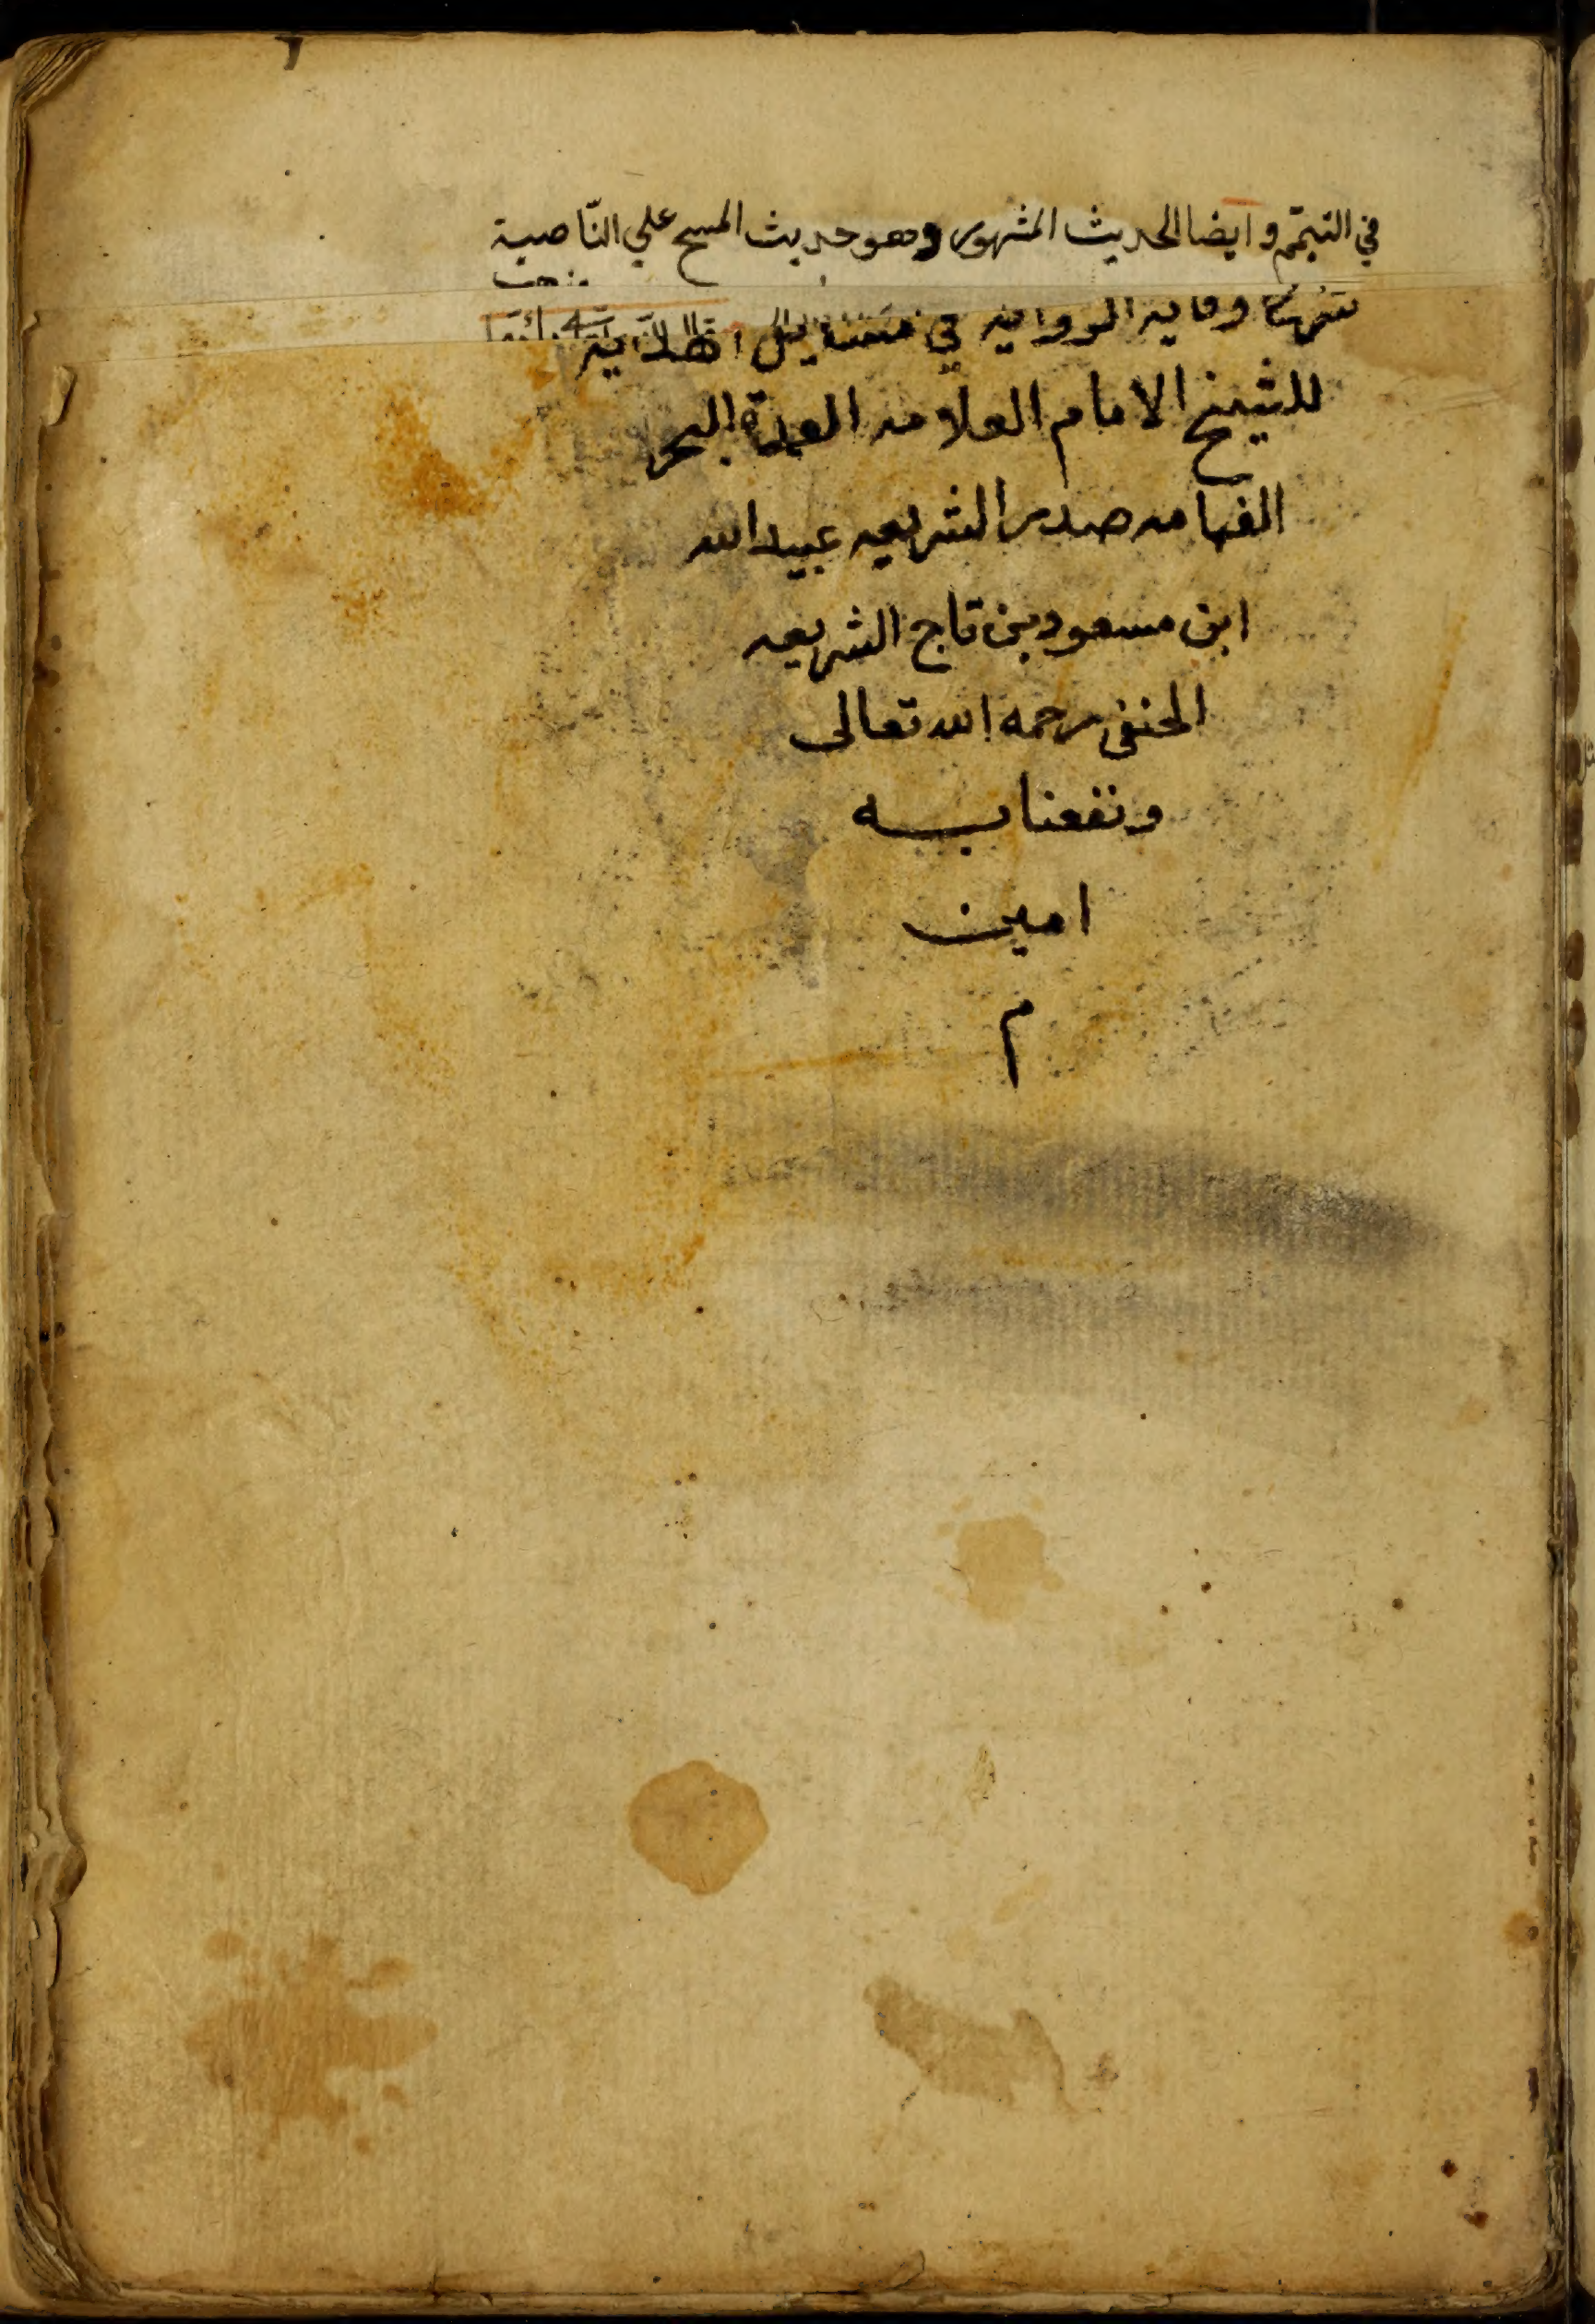 في التيمّم وايضا الحديث المشهور وهو حديث المسح علي النّاصية
وقايه الروايه في مسايل الهدايه
للشيخ الامام العلامه العمدة البحر
الفهامه صدر الشريعه عبيد الله
ابن مسعود بن تاج الشريعه
الحنفى رحمه الله تعالى
ونفعنا به
امين
م